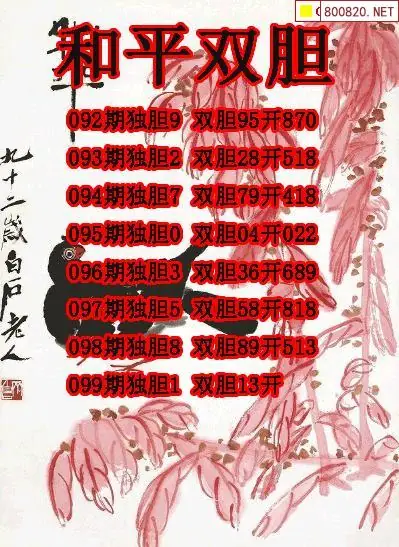 800820.NET
和平双胆
092期独胆9 双胆95开870
093期独胆2 双胆28开518
094期独胆7 双胆79开418
095期独胆0 双胆04开022
096期独胆3 双胆36开689
097期独胆5 双胆58开818
098期独胆8 双胆89开513
099期独胆1 双胆13开
九十二岁白石老人